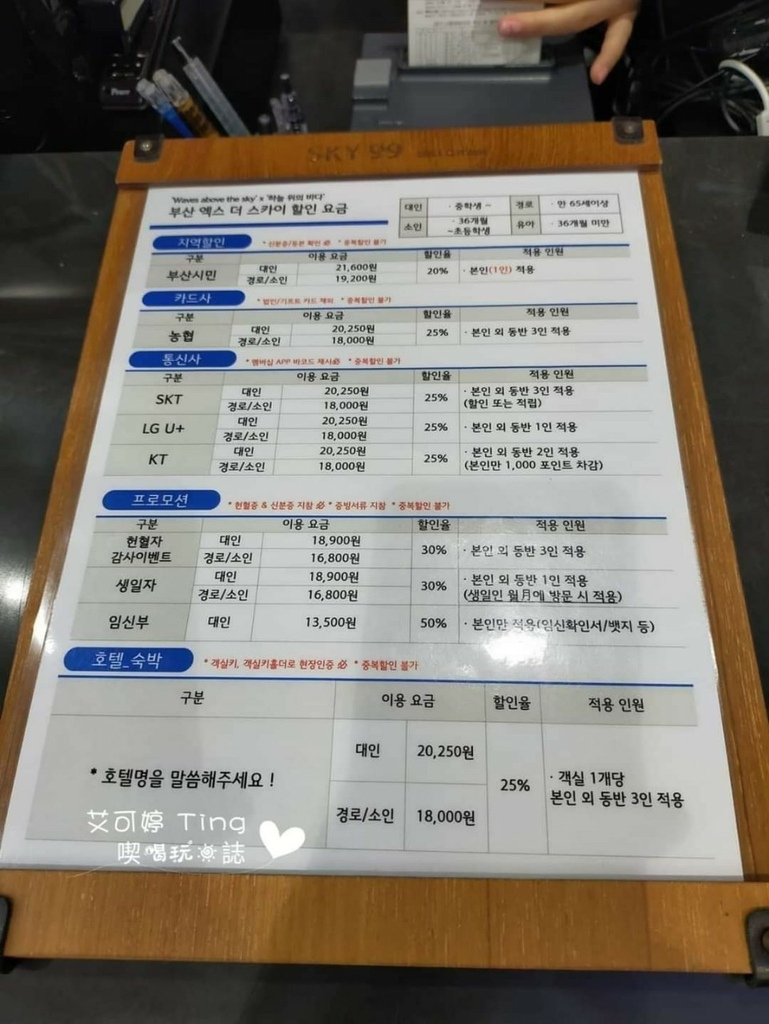 SKY 99
'Waves above the sky' x '하늘 위의 바다'
부산 엑스 더 스카이 할인 요금
대인 · 중학생 ~ 경로 · 만 65세이상
소인 · 36개월 ~초등학생 유아 · 36개월 미만
지역할인 * 신분증/등본 확인 必 * 중복할인 불가
구분 이용 요금 할인율 적용 인원
부산시민 대인 21,600원 20% · 본인(1인) 적용
경로/소인 19,200원
카드사 * 법인/기프트 카드 제외 * 중복할인 불가
구분 이용 요금 할인율 적용 인원
농협 대인 20,250원 25% · 본인 외 동반 3인 적용
경로/소인 18,000원
통신사 * 멤버십 APP 바코드 제시必 * 중복할인 불가
구분 이용 요금 할인율 적용 인원
SKT 대인 20,250원 25% · 본인 외 동반 3인 적용
경로/소인 18,000원 (할인 또는 적립)
LG U+ 대인 20,250원 25% · 본인 외 동반 1인 적용
경로/소인 18,000원
KT 대인 20,250원 25% · 본인 외 동반 2인 적용
경로/소인 18,000원 (본인만 1,000 포인트 차감)
프로모션 * 헌혈증 & 신분증 지참 必 * 증빙서류 지참 * 중복할인 불가
구분 이용 요금 할인율 적용 인원
헌혈자 대인 18,900원 30% · 본인 외 동반 3인 적용
감사이벤트 경로/소인 16,800원
생일자 대인 18,900원 30% · 본인 외 동반 1인 적용
경로/소인 16,800원 (생일인 월月에 방문 시 적용)
임신부 대인 13,500원 50% · 본인만 적용(임신확인서/뱃지 등)
호텔_숙박 * 객실키, 객실키홀더로 현장인증 必 * 중복할인 불가
구분 이용 요금 할인율 적용 인원
* 호텔명을 말씀해주세요 ! 대인 20,250원 25% · 객실 1개당
경로/소인 18,000원 본인 외 동반 3인 적용
艾可婷 Ting
喫喝玩樂誌